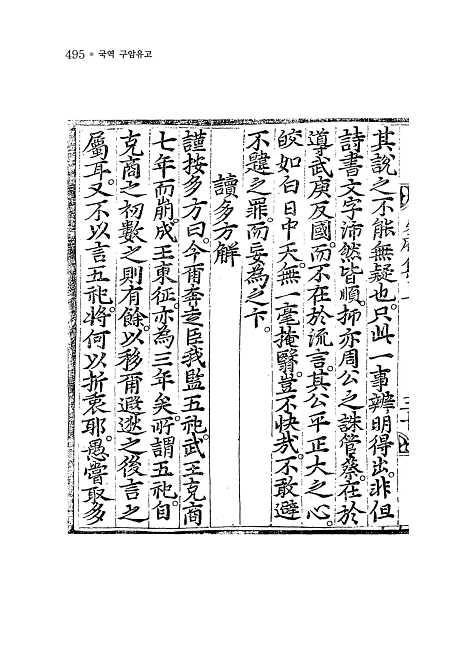 495 ● 국역 구암유고
其說之不能無疑也。只此一事辨明得出。非但
詩書文字沛然皆順。抑亦周公之誅管蔡。在於
導武庚反國。而不在於流言。其公平正大之心。
皎如白日中天。無一毫掩翳。豈不快哉。不敢避
不韙之罪。而妄為之卞。
讀多方解
謹按多方曰。今爾奔走臣我監五祀。武王克商
七年而崩。成王東征。亦為三年矣。所謂五祀。自
克商之初數之則有餘。以移爾遐逖之後言之
屬耳。又不以言五祀。將何以折衷耶。愚嘗取多